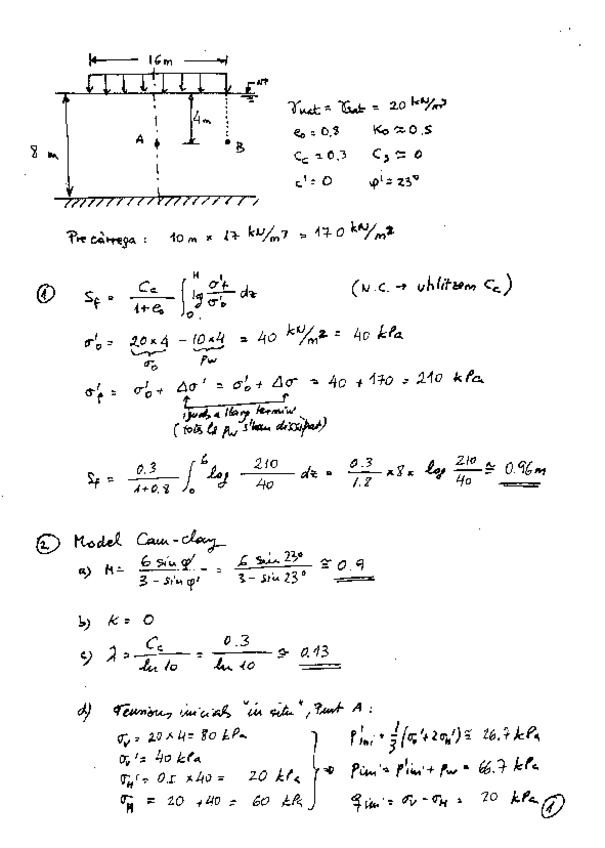 16m
NF
4m
A
B
8 m
γnat = γsat = 20 kN/m³
e₀ = 0,8 K₀ ≃ 0.5
Cc = 0.3 Cs ≃ 0
c' = 0 φ' = 23°
Precàrrega : 10 m × 17 kN/m³ = 170 kN/m²
① Sf = Cc/(1+e₀) ∫₀ᴴ lg σ'f/σ'₀ dz (N.C. → utilitzem Cc)
σ'₀ = 20×4 - 10×4 = 40 kN/m² = 40 kPa
σ₀ pw
σ'f = σ'₀ + Δσ' = σ'₀ + Δσ = 40 + 170 = 210 kPa
iguals a llarg termini
(tots les pw s'han dissipat)
Sf = 0.3/(1+0.8) ∫₀ log 210/40 dz = 0.3/1.8 × 8 × log 210/40 ≅ 0.96 m
② Model Cam-clay
a) M = 6 sin φ'/(3 - sin φ') = 6 sin 23°/(3 - sin 23°) ≅ 0.9
b) K = 0
c) λ = Cc/ln 10 = 0.3/ln 10 ≅ 0.13
d) Tensions inicials "in situ", Punt A :
σv = 20×4 = 80 kPa
σv' = 40 kPa
σH' = 0.5 × 40 = 20 kPa
σH = 20 + 40 = 60 kPa
p'ini = 1/3 (σv' + 2σH') ≅ 26.7 kPa
⇒ pini = p'ini + pw = 66.7 kPa
qini = σv - σH = 20 kPa
①